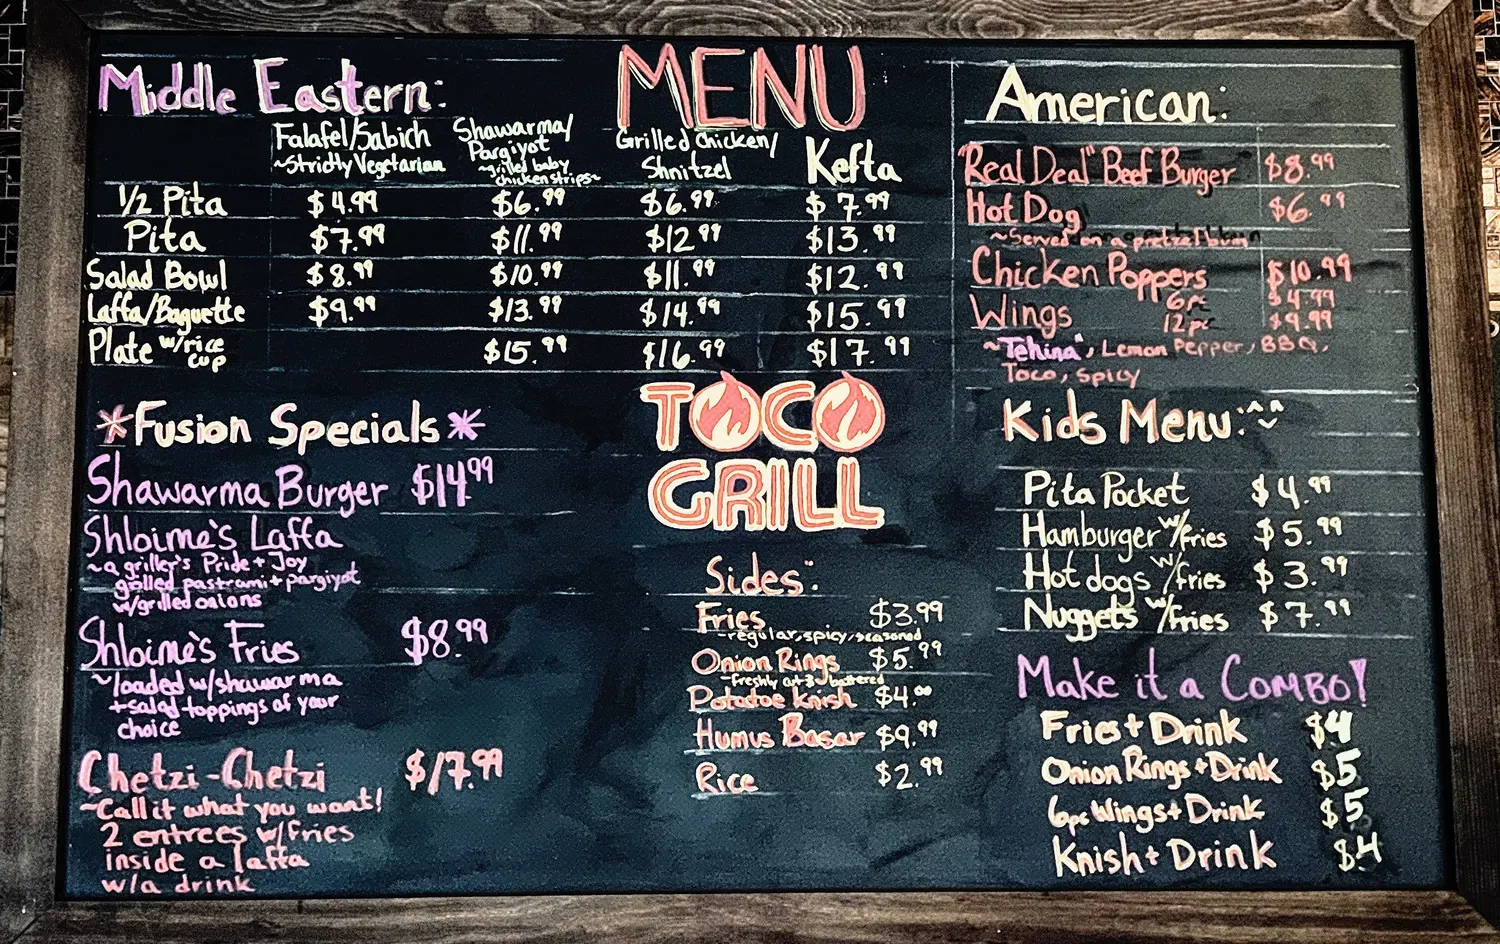 MENU
Middle Eastern:
Falafel/Sabich
~Strictly Vegetarian
Shawarma/
Pargiyot
~grilled baby
chicken strips~
Grilled Chicken/
Shnitzel
Kefta
1/2 Pita $4.99 $6.99 $6.99 $7.99
Pita $7.99 $11.99 $12.99 $13.99
Salad Bowl $8.99 $10.99 $11.99 $12.99
Laffa/Baguette $9.99 $13.99 $14.99 $15.99
Plate w/rice cup $15.99 $16.99 $17.99
*Fusion Specials*
Shawarma Burger $14.99
Shloime's Laffa
~a griller's Pride + Joy
grilled pastrami + pargiyot
w/grilled onions
Shloime's Fries $8.99
~loaded w/shawarma
+salad toppings of your
choice
Chetzi-Chetzi $17.99
~Call it what you want!
2 entrees w/fries
inside a laffa
w/a drink
TOCO
GRILL
Sides:
Fries $3.99
~regular, spicy, seasoned
Onion Rings $5.99
~freshly cut & battered
Potatoe Knish $4.00
Humus Basar $9.99
Rice $2.99
American:
"Real Deal" Beef Burger $8.99
Hot Dog $6.99
~Served on a pretzel bun
Chicken Poppers $10.99
Wings 6pc $4.99
12pc $9.99
~"Tehina", Lemon Pepper, BBQ,
Toco, Spicy
Kids Menu:
Pita Pocket $4.99
Hamburger w/fries $5.99
Hot dogs w/fries $3.99
Nuggets w/fries $7.99
Make it a COMBO!
Fries + Drink $4
Onion Rings + Drink $5
6pc Wings + Drink $5
Knish + Drink $4